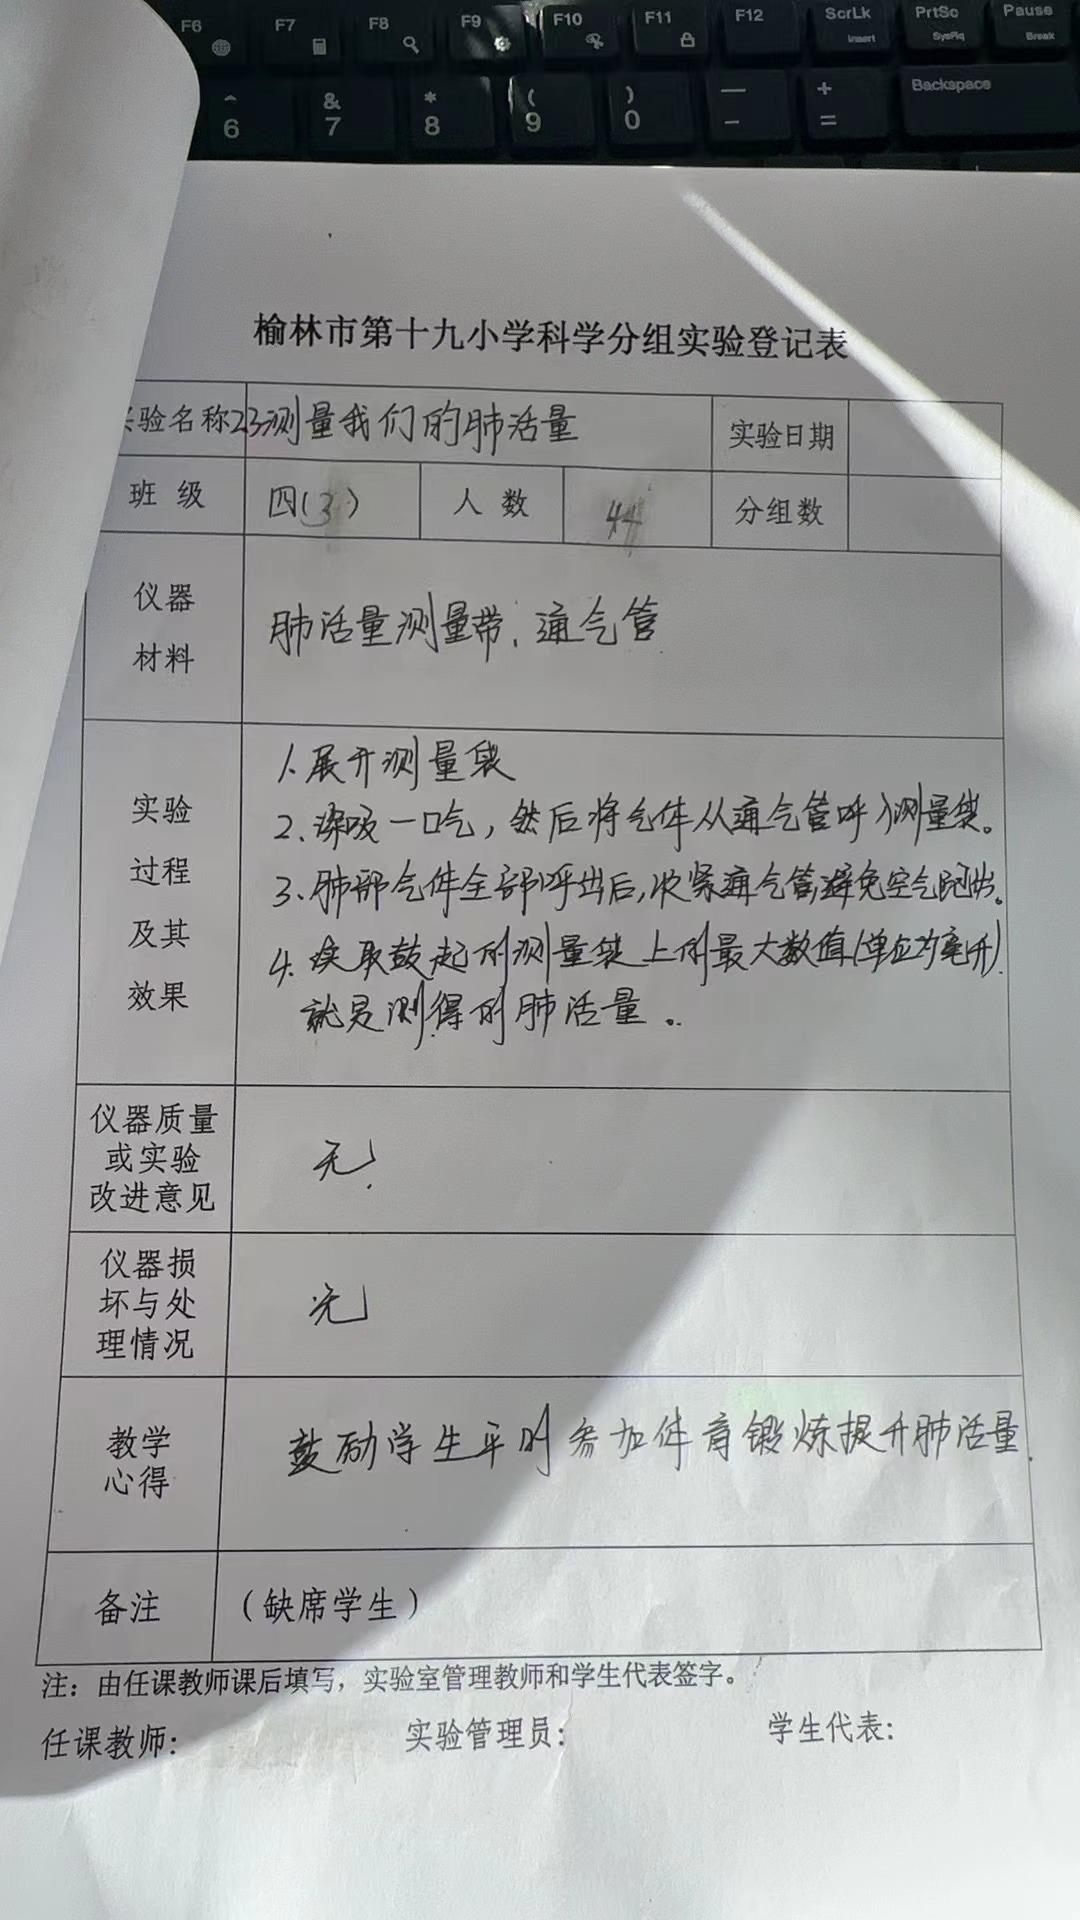 F6 F7 F8 F9 F10 F11 F12 ScrLk Insert PrtSc SysRq Pause Break
^ 6 & 7 * 8 ( 9 ) 0 — - + = Backspace
榆林市第十九小学科学分组实验登记表
验名称 23测量我们的肺活量 实验日期
班 级 四(3) 人 数 44 分组数
仪器
材料
肺活量测量带、通气管
实验
过程
及其
效果
1.展开测量袋
2.深吸一口气,然后将气体从通气管呼入测量袋。
3.肺部气体全部呼出后,收紧通气管避免空气跑出。
4.读取鼓起的测量袋上的最大数值(单位为毫升)
就是测得的肺活量。
仪器质量
或实验
改进意见
无
仪器损
坏与处
理情况
无
教学
心得
鼓励学生平时参加体育锻炼提升肺活量
备注 (缺席学生)
注:由任课教师课后填写,实验室管理教师和学生代表签字。
任课教师: 实验管理员: 学生代表: